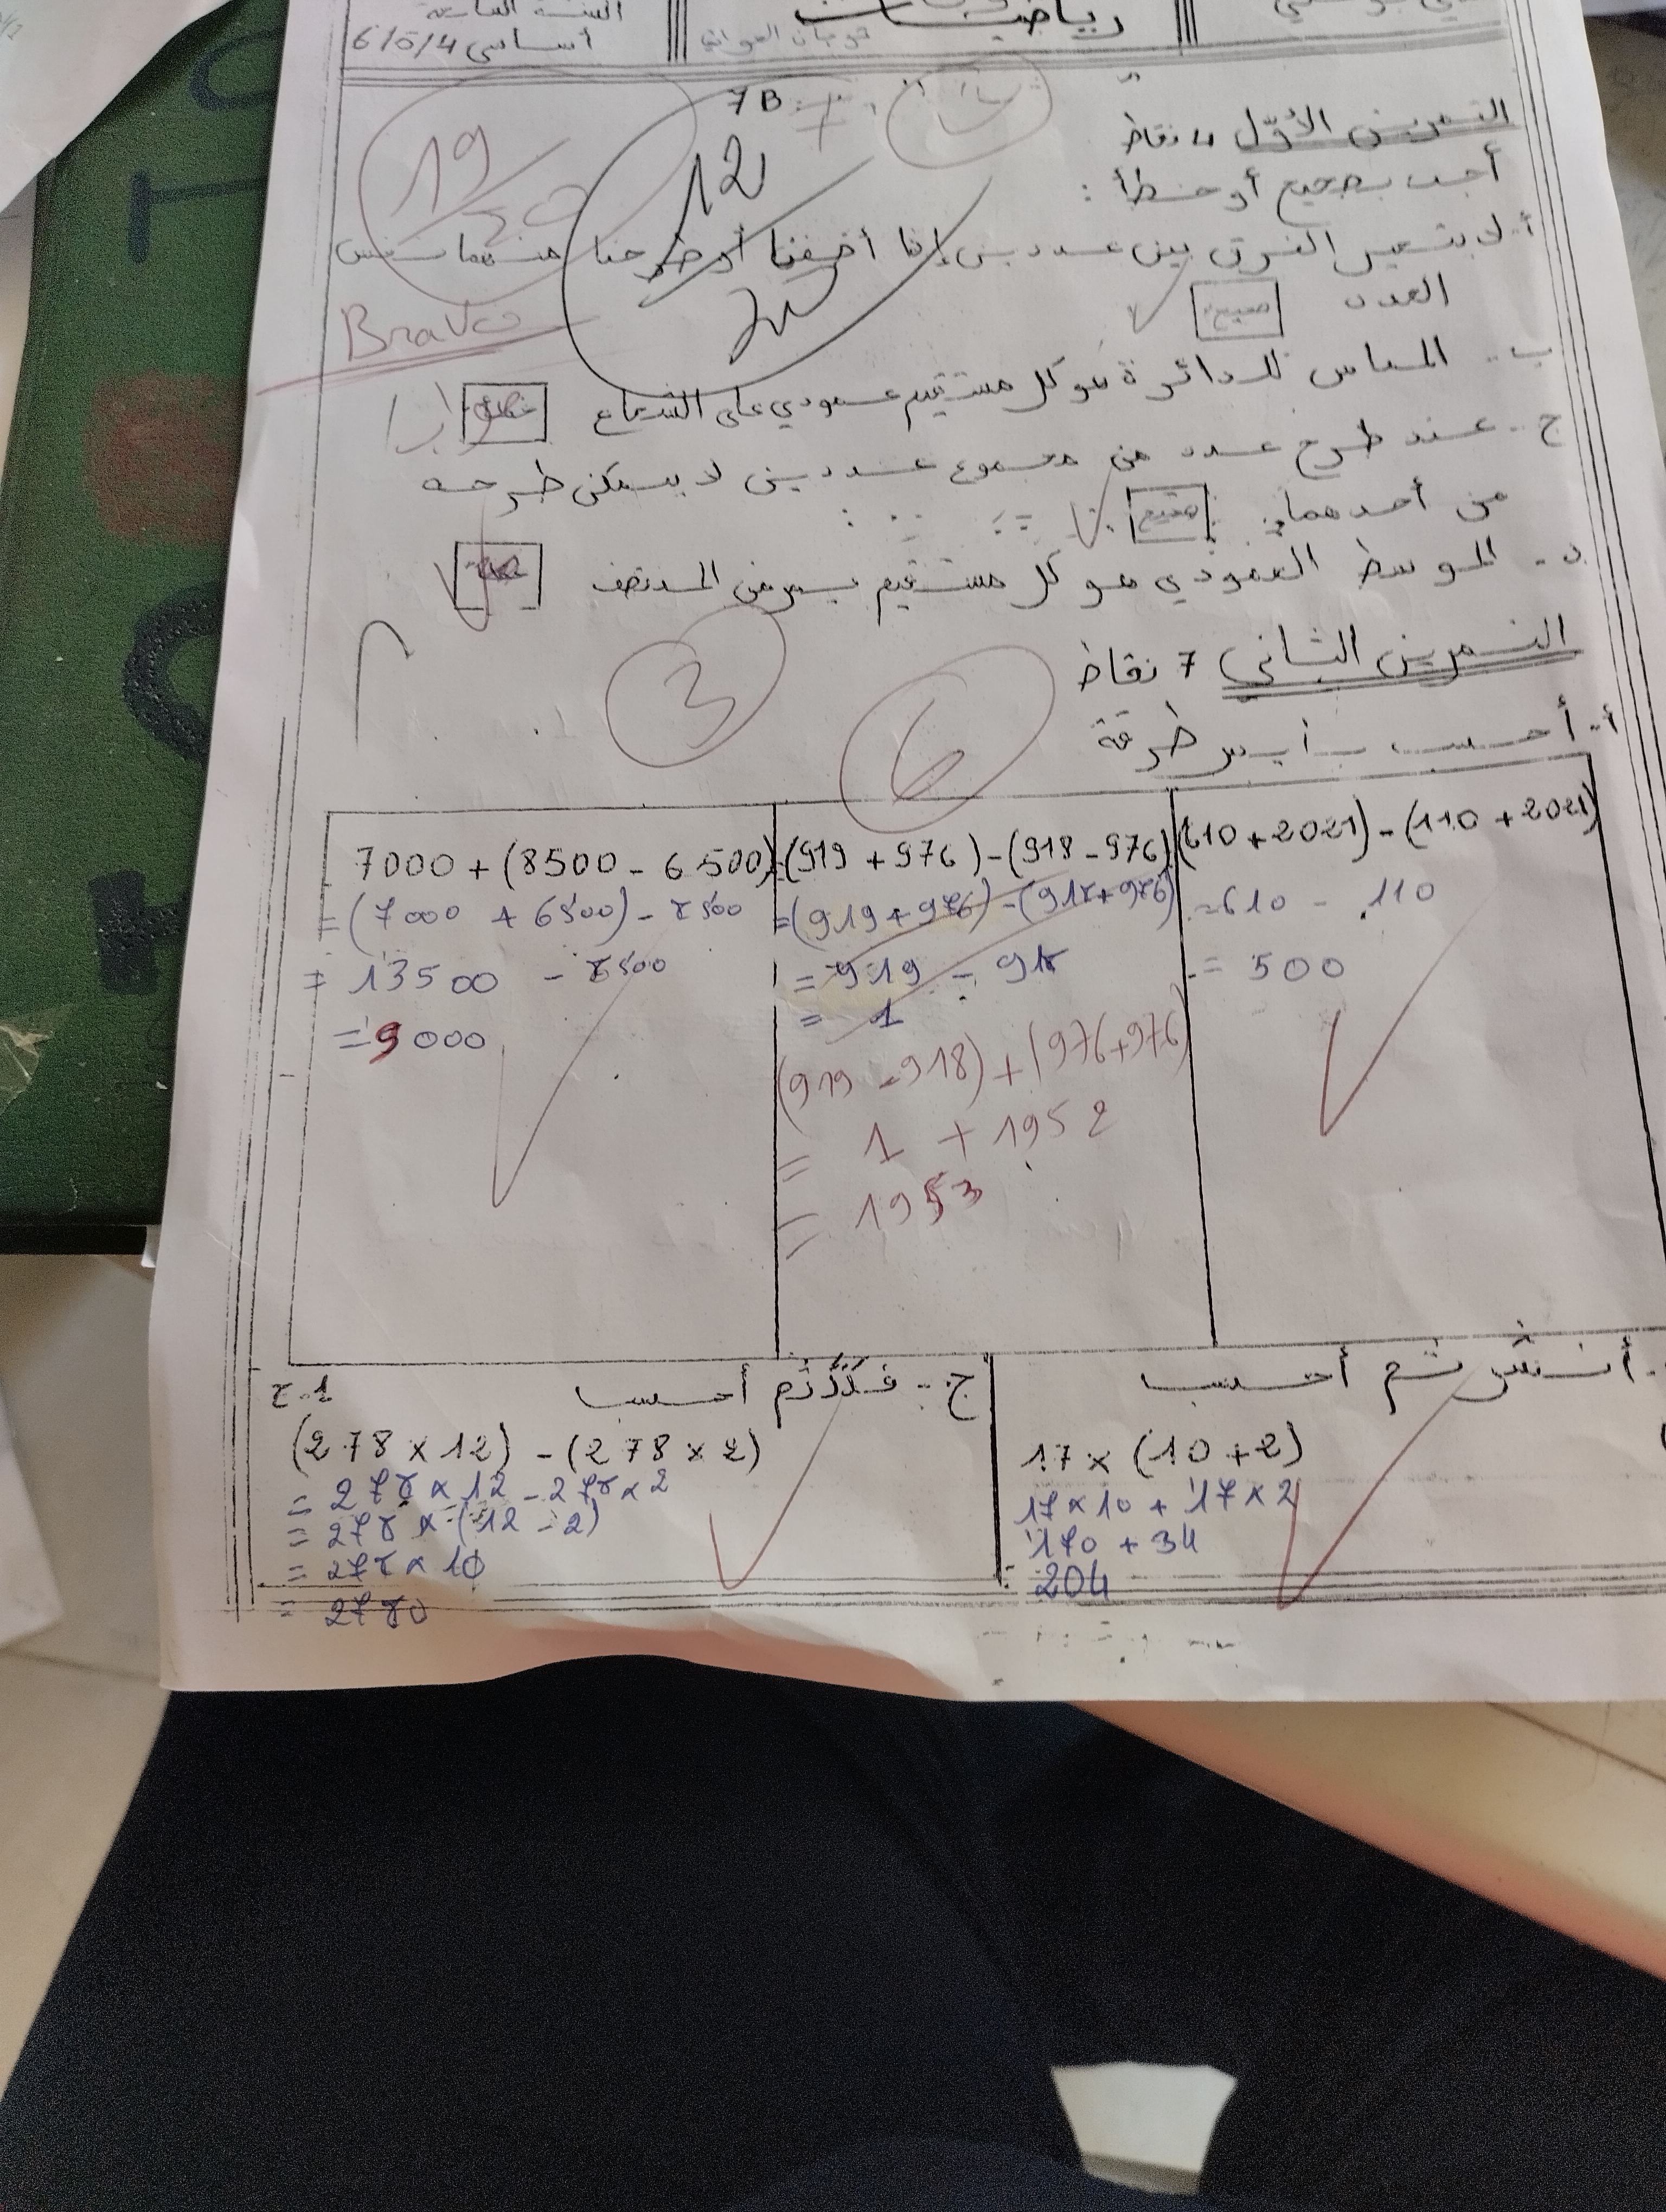 رياضيات
السنة السابعة
أساسي 6/5/4
7B
التمرين الأوّل 4 نقاط
أجب بصحيح أو خطأ:
19
20
12
20
Bravo
أ- لا يتغير الفرق بين عددين إذا أضفنا أو طرحنا منهما نفس
العدد صحيح
ب- المماس للدائرة هو كل مستقيم عمودي على الشعاع
ج- عند طرح عدد من مجموع عددين لا يمكن طرحه
من أحدهما. صحيح
د- الموسط العمودي هو كل مستقيم يمر من المنتصف
3
التمرين الثاني 7 نقاط
6
أ- أحسب بأيسر طرقة
(610+2021)-(110+2021)
=610 - 110
= 500
(919+976)-(918-976)
=(919+976)-(918+976)
= 919 - 918
= 1
(919-918)+(976+976)
= 1 + 1952
= 1953
7000+(8500-6500)
=(7000+6500)-8500
= 13500 - 8500
=9000
أنشر ثم أحسب
17×(10+2)
17×10+17×2
170+34
204
ج- فكّك ثم أحسب
ج-1
(278×12)-(278×2)
= 278×12-278×2
= 278×(12-2)
= 278×10
= 2780